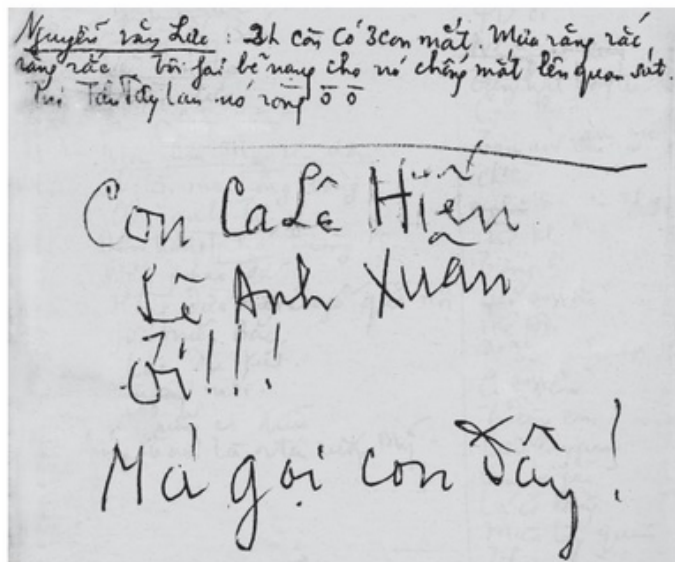 Nguyễn văn Lục : 2h còn có 3 con mắt. Mưa răng rắc
răng rắc tôi gai bẻ nang cho nó chống mắt lên quan sát.
Tàu Tây lau nó rong ō ō
Con Ca Lê Hiến
Lê Anh Xuân
Ơi!!!
Má gọi con Đây!